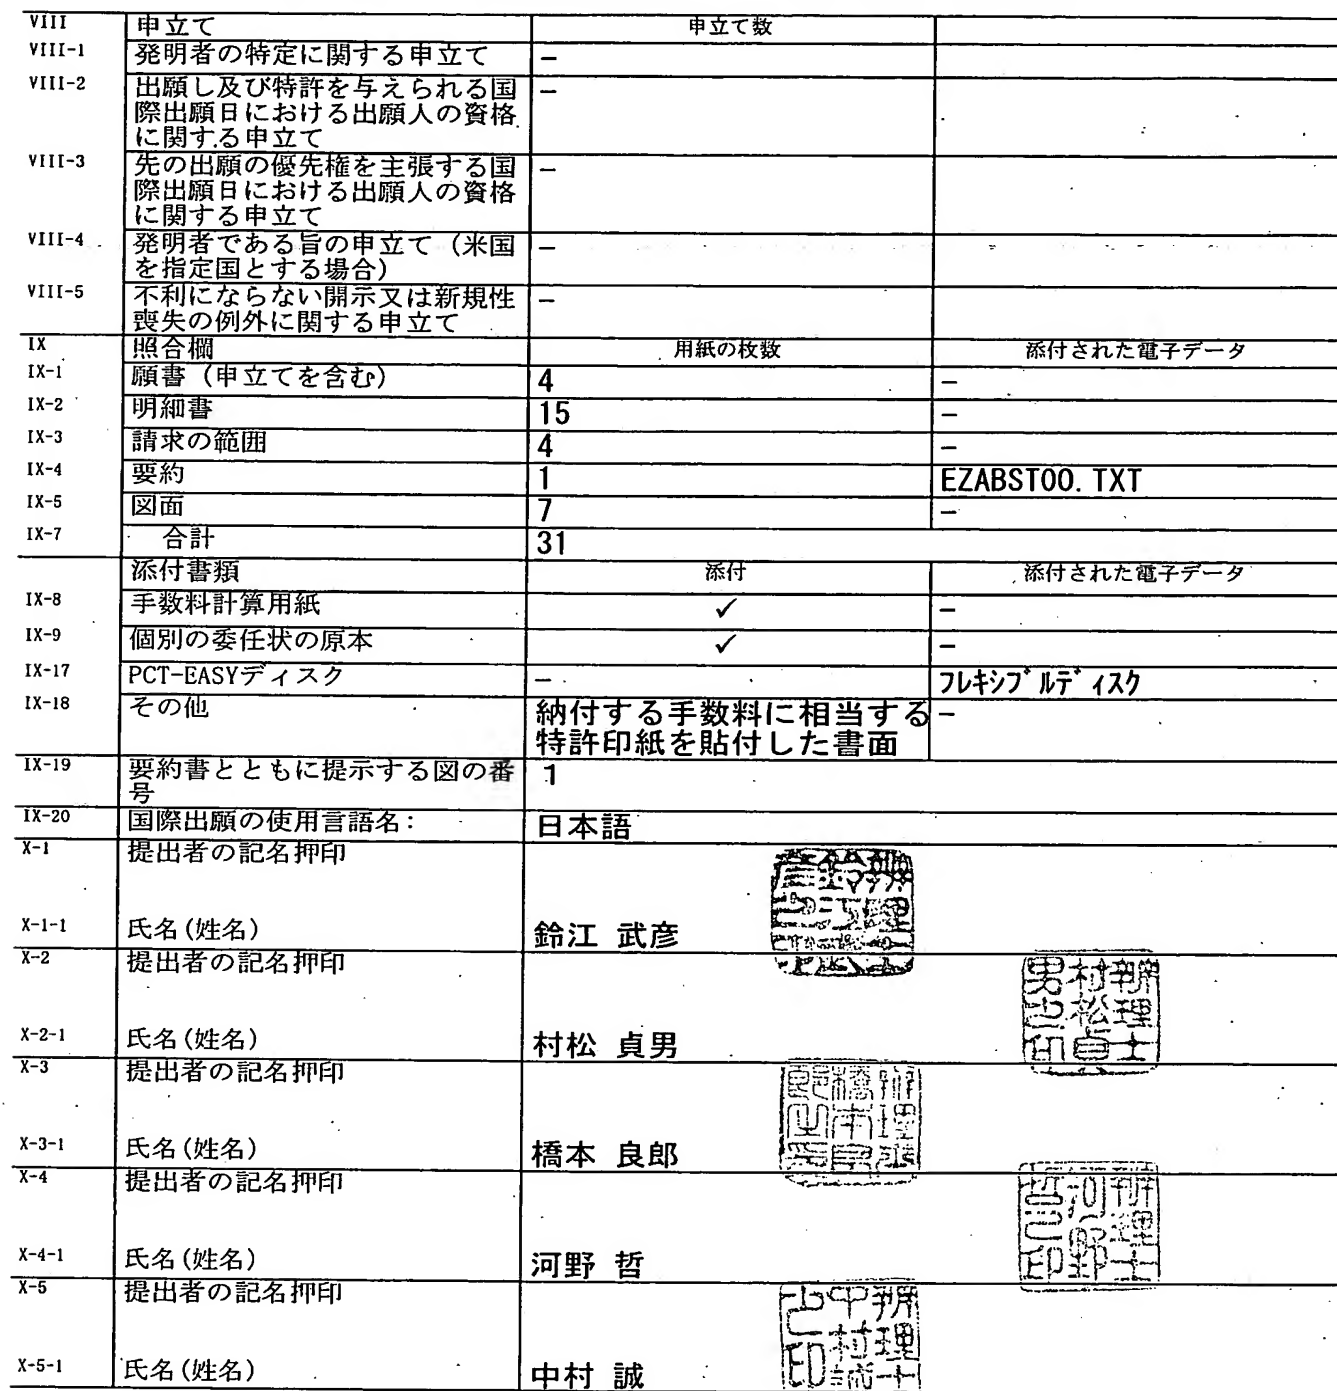 VIII 申立て 申立て数
VIII-1 発明者の特定に関する申立て –
VIII-2 出願し及び特許を与えられる国 –
際出願日における出願人の資格
に関する申立て
VIII-3 先の出願の優先権を主張する国 –
際出願日における出願人の資格
に関する申立て
VIII-4 発明者である旨の申立て（米国 –
を指定国とする場合）
VIII-5 不利にならない開示又は新規性 –
喪失の例外に関する申立て
IX 照合欄 用紙の枚数 添付された電子データ
IX-1 願書（申立てを含む） 4 –
IX-2 明細書 15 –
IX-3 請求の範囲 4 –
IX-4 要約 1 EZABST00.TXT
IX-5 図面 7 –
IX-7 合計 31
添付書類 添付 添付された電子データ
IX-8 手数料計算用紙 ✓ –
IX-9 個別の委任状の原本 ✓ –
IX-17 PCT-EASYディスク – フレキシブルディスク
IX-18 その他 納付する手数料に相当する –
特許印紙を貼付した書面
IX-19 要約書とともに提示する図の番 1
号
IX-20 国際出願の使用言語名： 日本語
X-1 提出者の記名押印
X-1-1 氏名(姓名) 鈴江 武彦
X-2 提出者の記名押印
弁理士
村松貞
男之印
X-2-1 氏名(姓名) 村松 貞男
X-3 提出者の記名押印
弁理士
橋本良
郎之印
X-3-1 氏名(姓名) 橋本 良郎
X-4 提出者の記名押印
弁理士
河野
哲之印
X-4-1 氏名(姓名) 河野 哲
X-5 提出者の記名押印
弁理士
中村誠
之印
X-5-1 氏名(姓名) 中村 誠